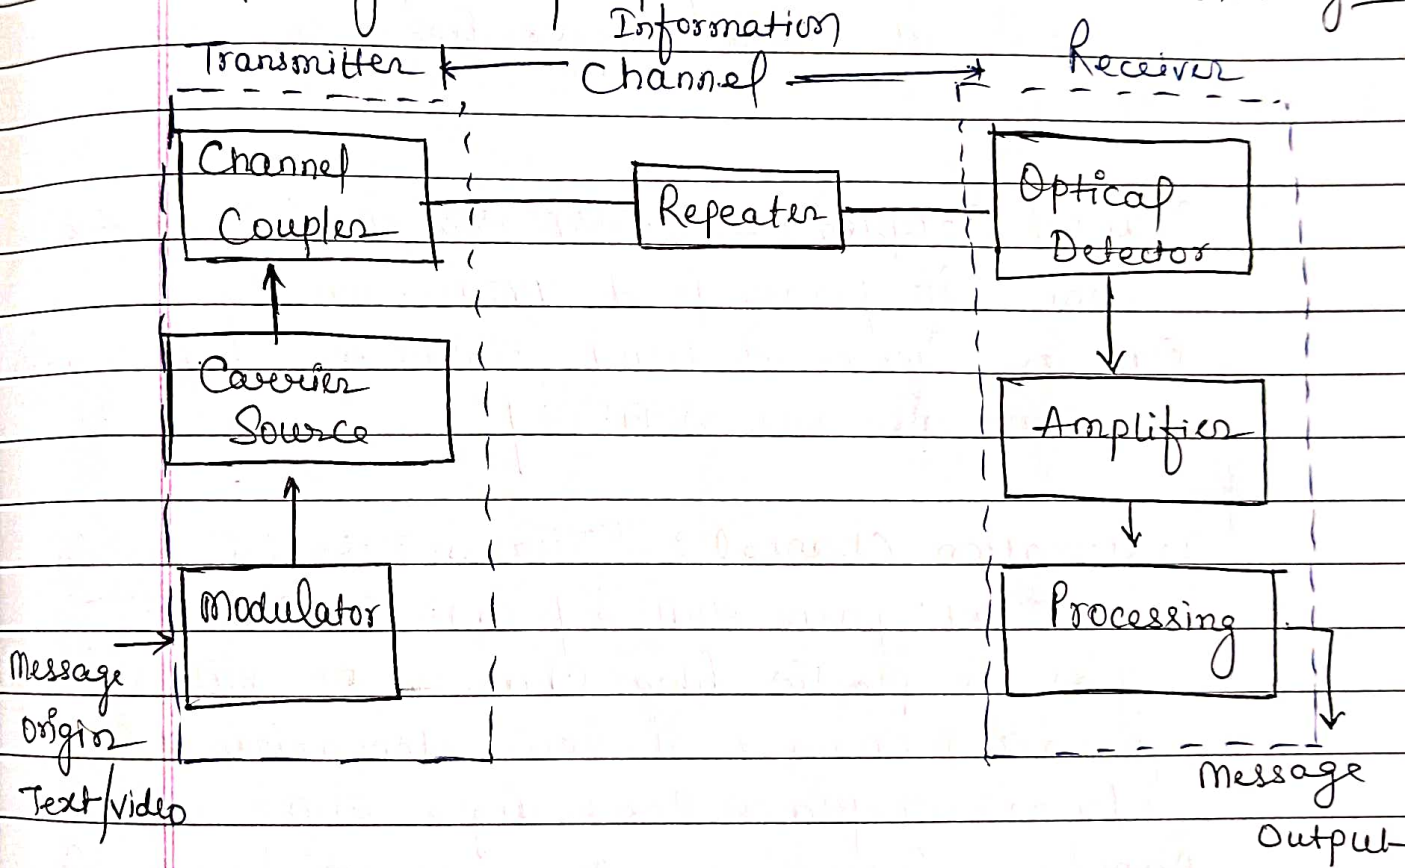 Information
Transmitter
Channel
Receiver
Channel
Coupler
Repeater
Optical
Detector
Carrier
Source
Amplifier
Modulator
Processing
Message
Origin
Text/video
Message
Output